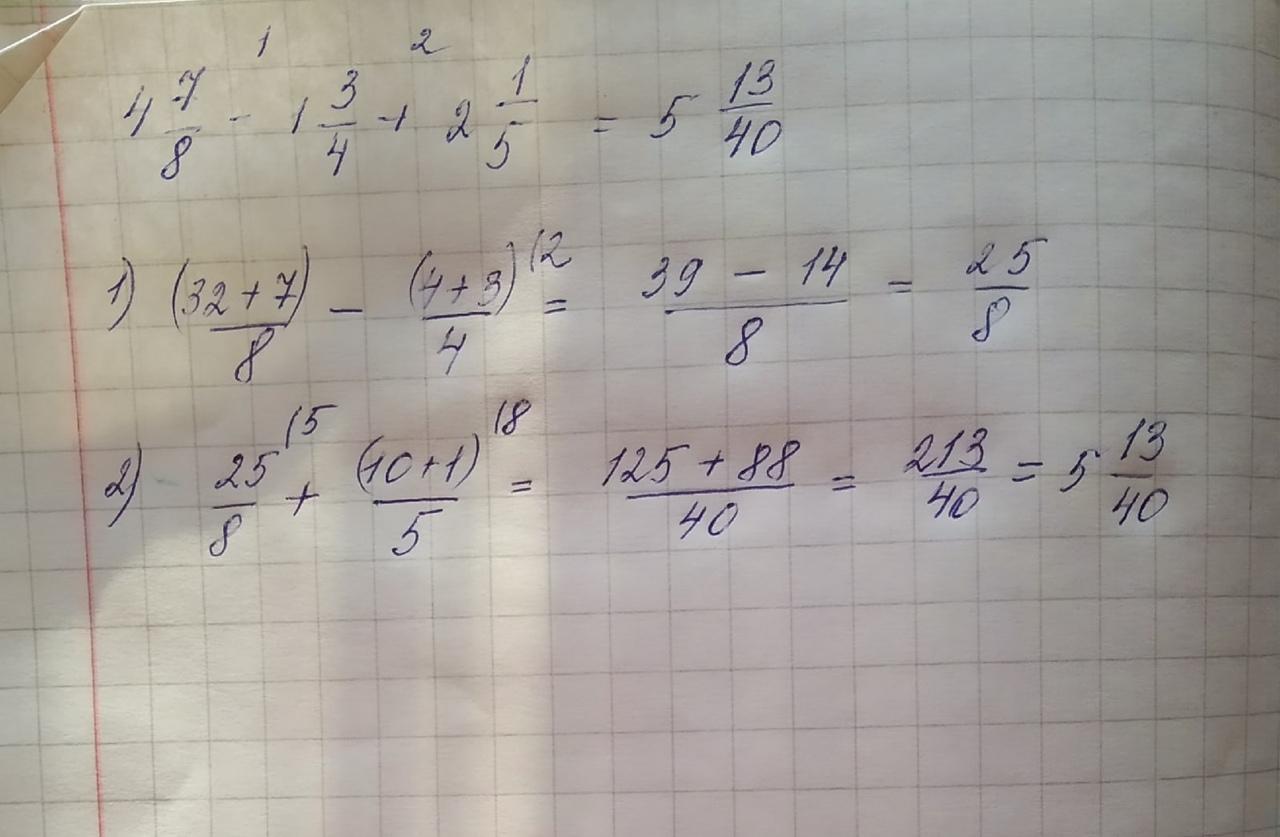 1 2
4 7/8 - 1 3/4 + 2 1/5 = 5 13/40
1) (32+7)/8 - (4+3)/4 (2 = 39 - 14/8 = 25/8
2) 25/8 (5 + (10+1)/5 (8 = 125 + 88/40 = 213/40 = 5 13/40